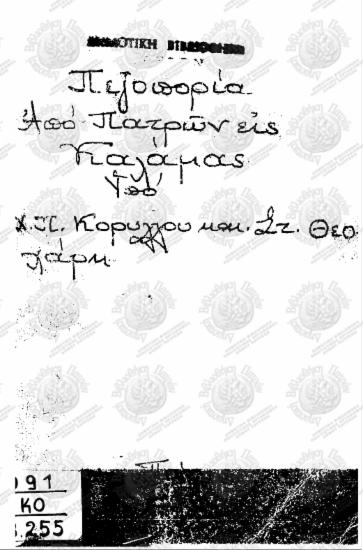 ΔΗΜΟΤΙΚΗ ΒΙΒΛΙΟΘΗΚΗ
Πεζοπορία
Από Πατρών εις
Καλάμας
Υπό
Χ.Π. Κορύλλου και Στ. Θεο
χάρη
191
ΚΟ
255